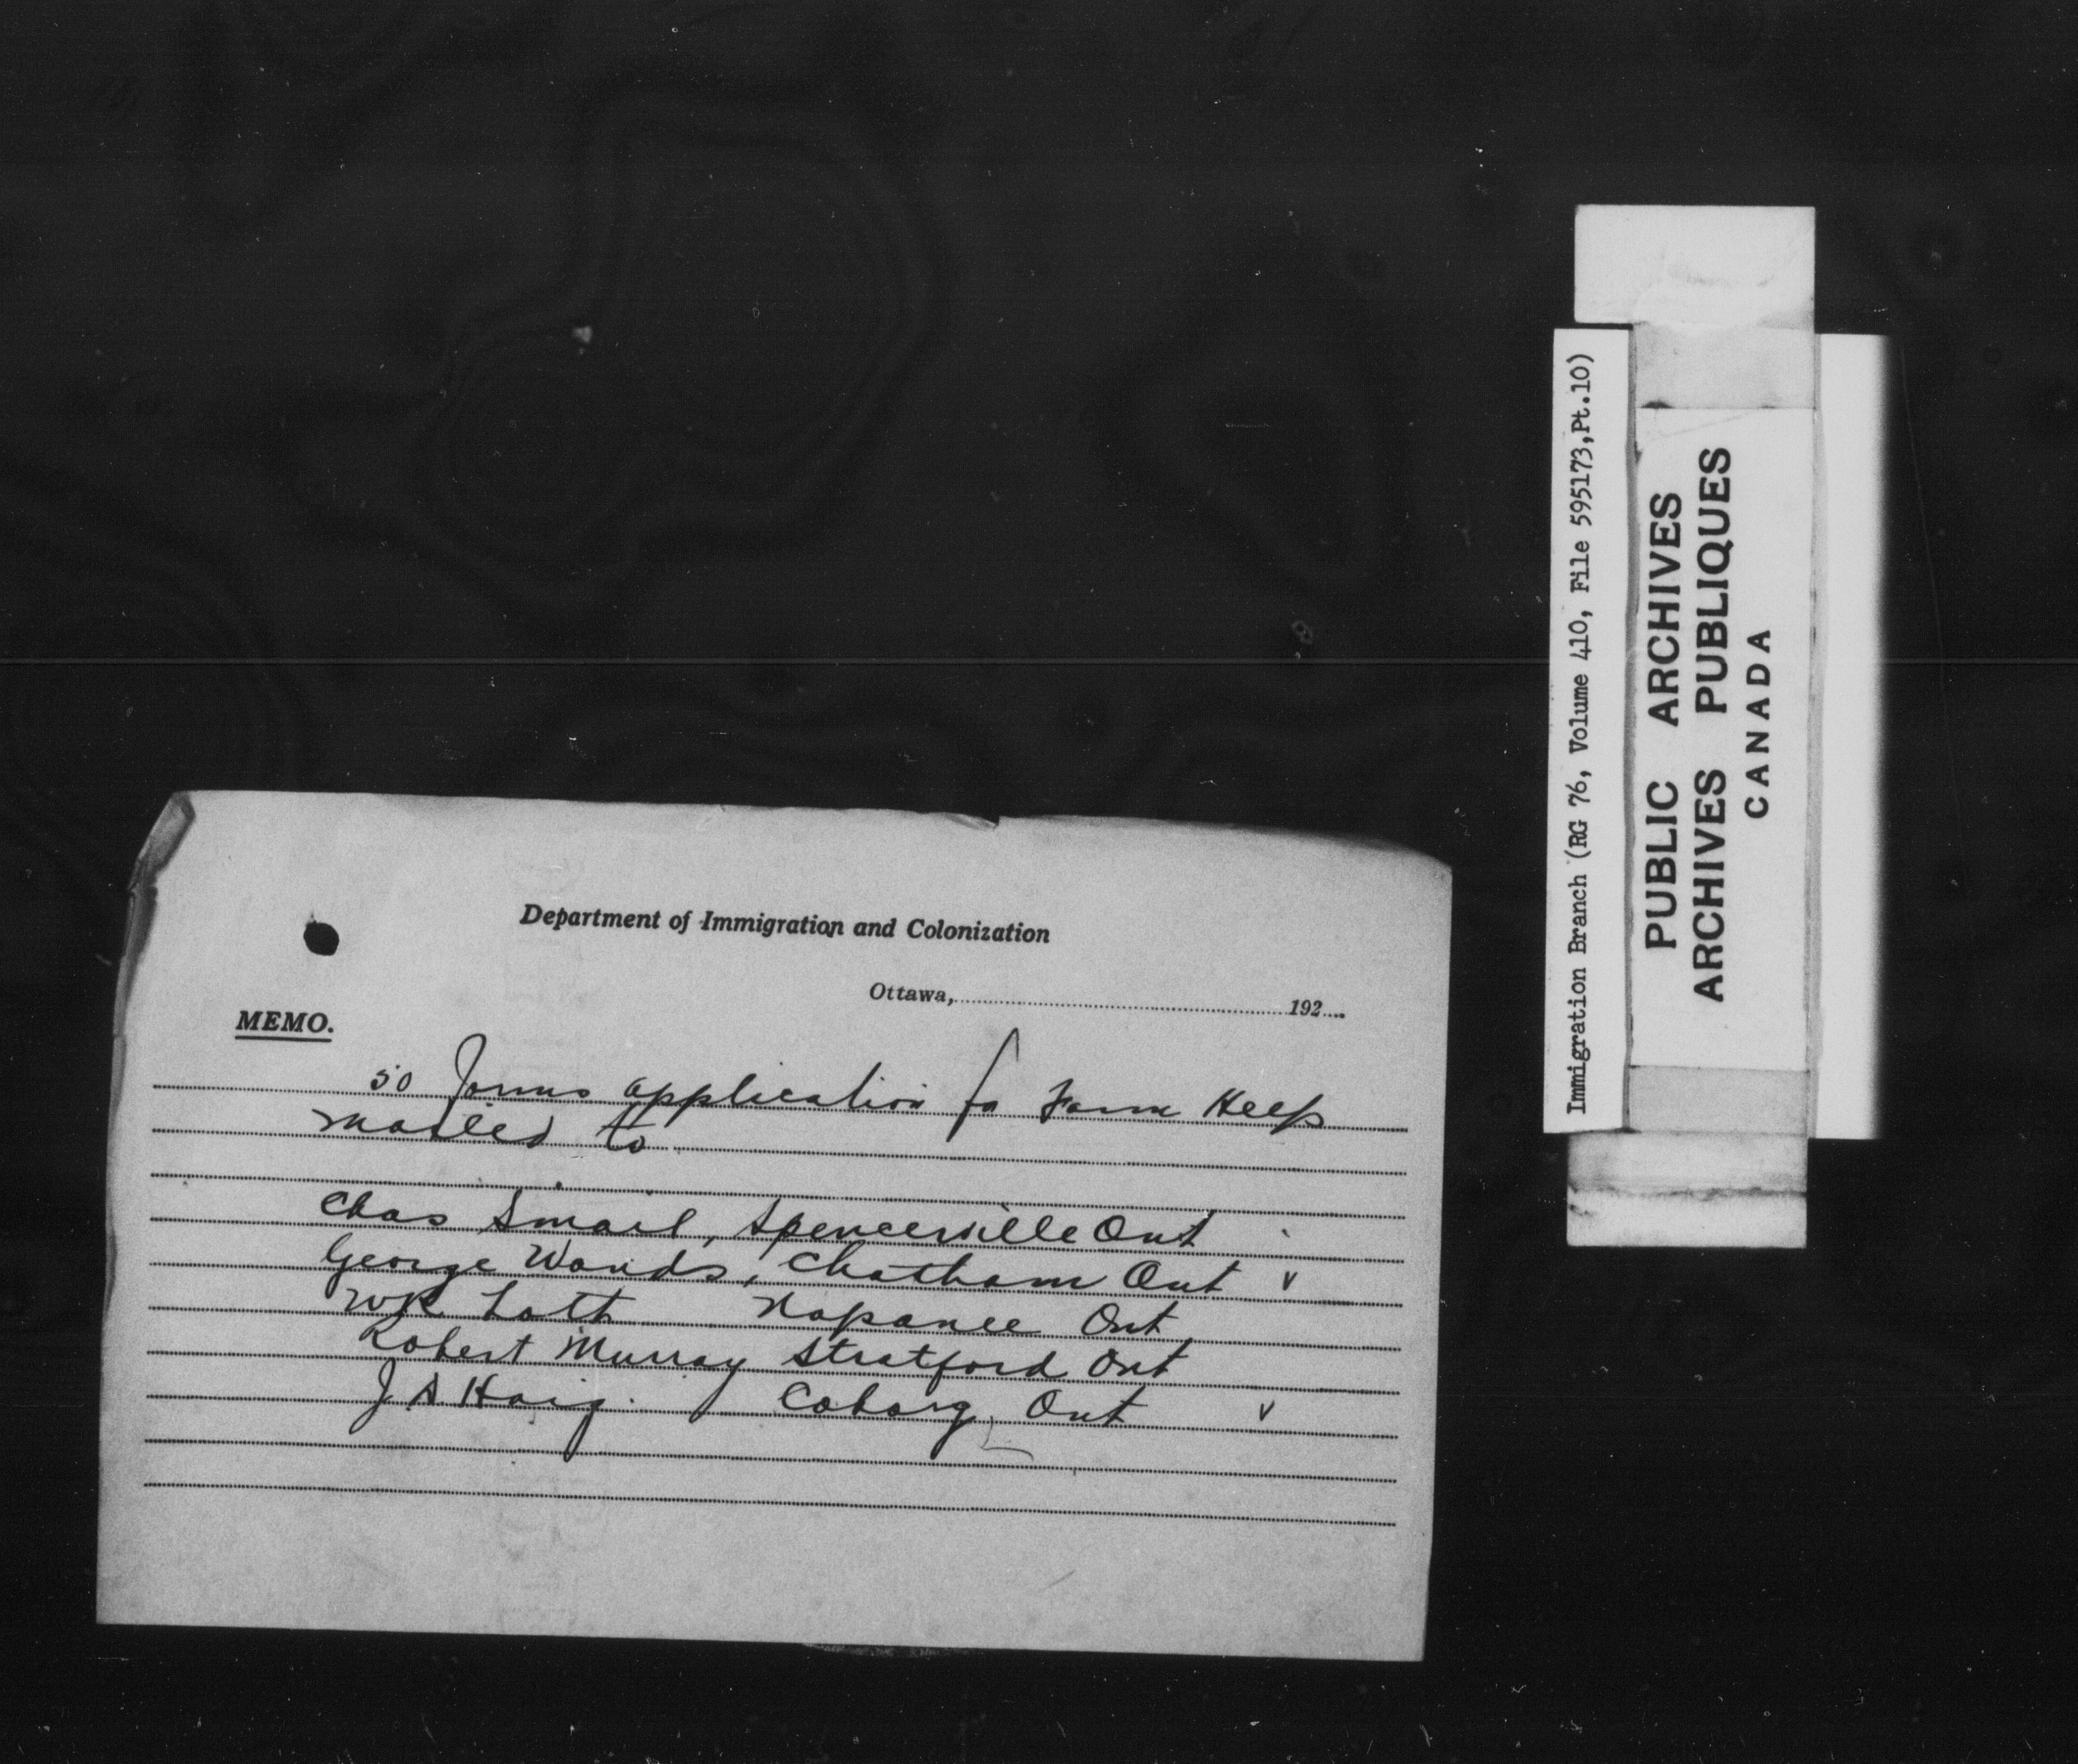 Department of Immigration and Colonization
Ottawa, 192
MEMO.
50 forms application for Farm Help
mailed to
Chas Smail, Spencerville Ont
George Wands, Chatham Ont v
WR Lott Napanee Ont
Robert Murray Stratford Ont
J A Haig. Coborg Ont v
Immigration Branch (RG 76, Volume 410, File 595173,Pt.10)
PUBLIC ARCHIVES
ARCHIVES PUBLIQUES
CANADA